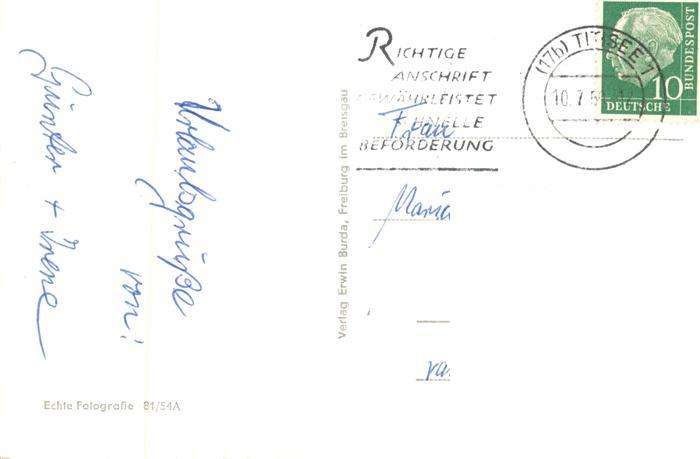 Urlaubsgrüße
von!
Günter + Irene
Echte Fotografie 81/54A
Verlag Erwin Burda, Freiburg im Breisgau
RICHTIGE
ANSCHRIFT
GEWÄHRLEISTET
SCHNELLE
BEFÖRDERUNG
(17b) TITISEE
10. 7. 5
10
DEUTSCHE
BUNDESPOST
Frau
Maria